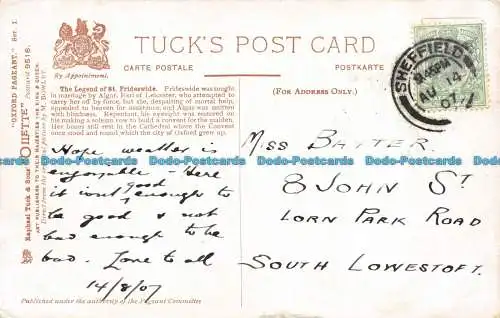 TUCK'S POST CARD
CARTE POSTALE
POSTKARTE
By Appointment.
(FOR ADDRESS ONLY.)
The Legend of St. Frideswide. Frideswide was sought
in marriage by Algar, Earl of Leicester, who attempted to
carry her off by force, but she, despairing of mortal help,
appealed to heaven for assistance, and Algar was smitten
with blindness. Repentant, his eyesight was restored on
his making a solemn vow to build a convent for the maiden.
Her bones still rest in the Cathedral where the Convent
once stood and round which the city of Oxford grew up.
Hope weather is
enjoyable - Here
it isn't good enough to
be good & not
bad enough to be
bad. Love to all
14/8/07
Published under the authority of the Pageant Committee
"OXFORD PAGEANT." Ser. I.
Postcard 9516.
Raphael Tuck & Sons' "OILETTE"
ART PUBLISHERS TO THEIR MAJESTIES THE KING & QUEEN.
SHEFFIELD
MISS BAXTER
8 JOHN ST
LORN PARK ROAD
SOUTH LOWESTOFT.